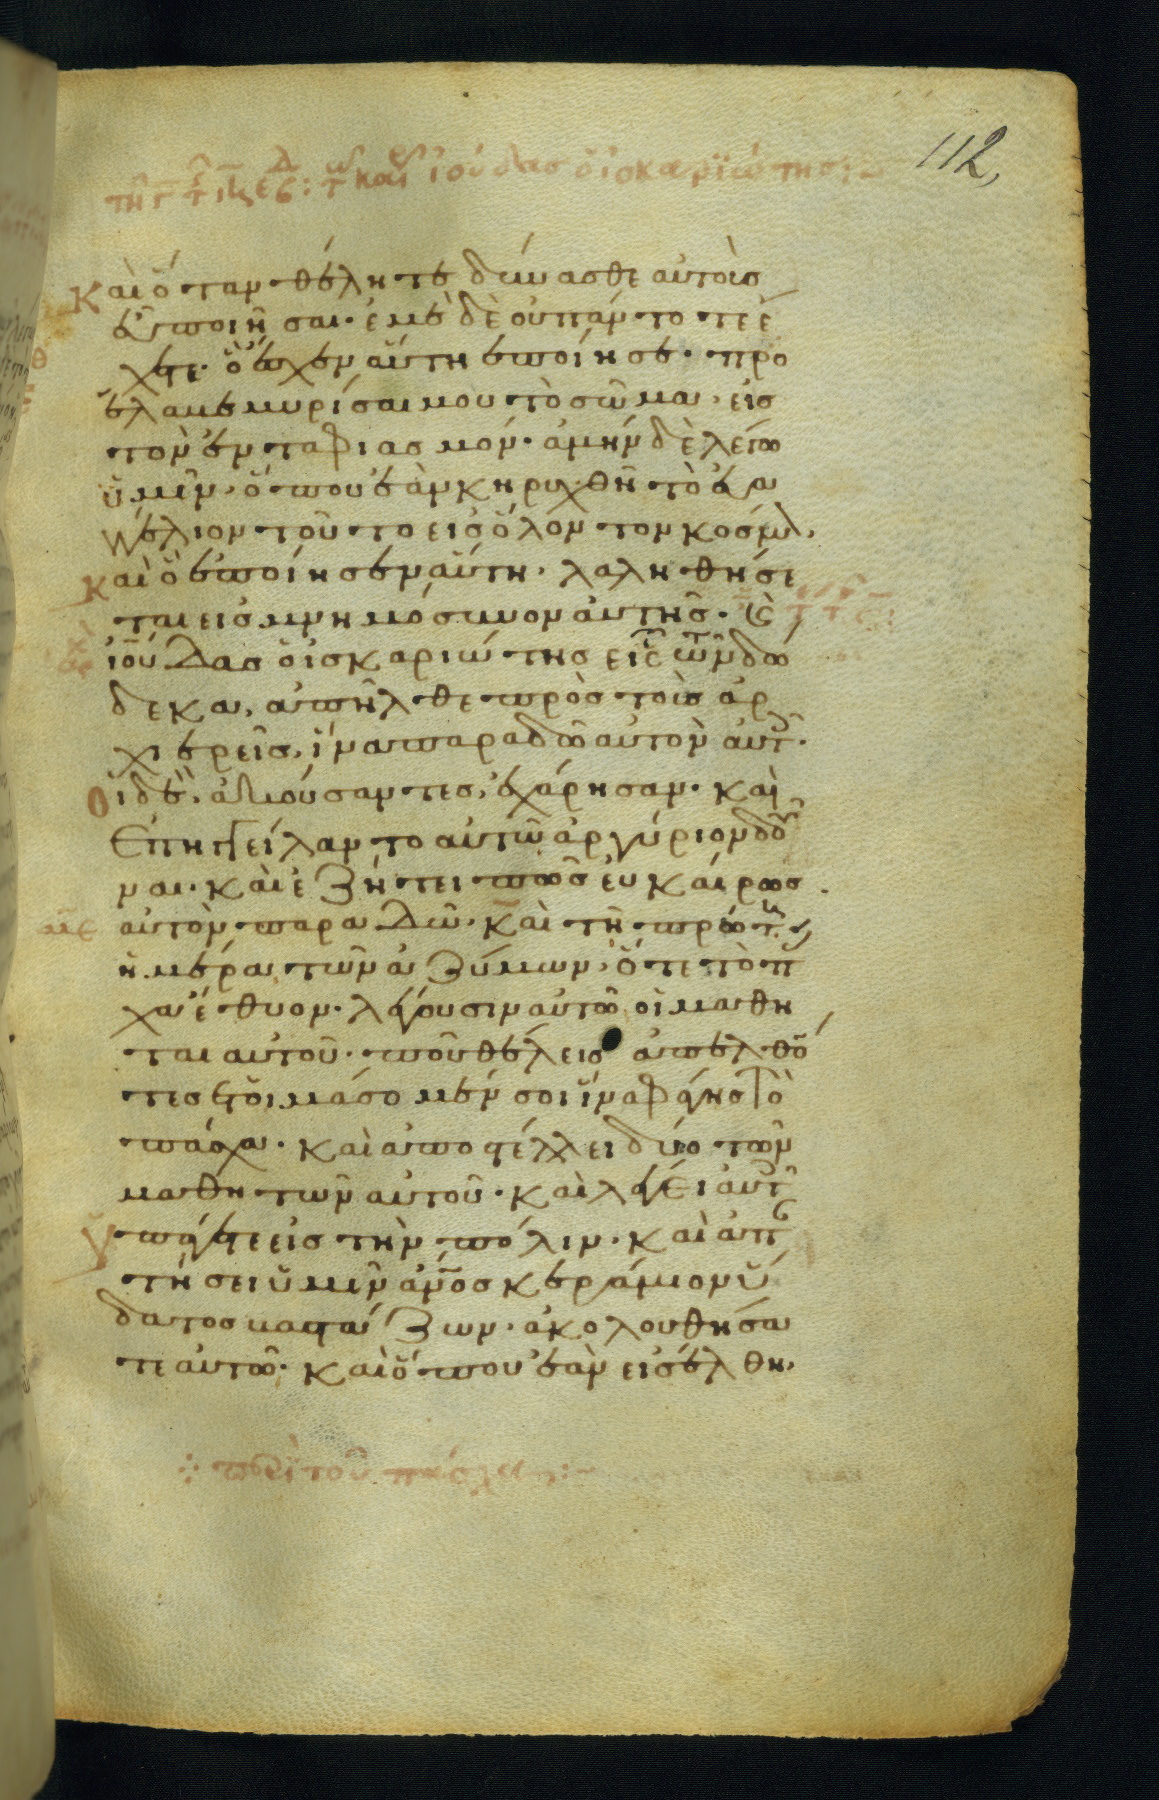 112
καὶ ὅταν θέλητε δύνασθε αὐτοὺς
εὖ ποιῆσαι· ἐμὲ δὲ οὐ πάντοτε ἔ
χετε· ὃ ἔσχεν αὕτη ἐποίησε· προ
έλαβε μυρίσαι μου τὸ σῶμα, εἰς
τὸν ἐνταφιασμόν· ἀμὴν δὲ λέγω
ὑμῖν, ὅπου ἐὰν κηρυχθῆ τὸ εὐα
γγέλιον τοῦτο εἰς ὅλον τὸν κόσμον,
καὶ ὃ ἐποίησεν αὕτη, λαληθήσε
ται εἰς μνημόσυνον αὐτῆς. καὶ
ἰούδας ὁ ἰσκαριώτης εἷς τῶν δώ
δεκα, ἀπῆλθε πρὸς τοὺς ἀρ
χιερεῖς, ἵνα παραδῶ αὐτὸν αὐτοῖς.
οἱ δὲ, ἀκούσαντες, ἐχάρησαν· καὶ
ἐπηγγείλαντο αὐτῶ ἀργύριον δοῦ
ναι. καὶ ἐζήτει πῶς εὐκαίρως
αὐτὸν παραδῶ. καὶ τῆ πρώτη
ἡμέρα τῶν ἀζύμων, ὅτε τὸ πάσ
χα ἔθυον. λέγουσιν αὐτῶ οἱ μαθη
ταὶ αὐτοῦ. ποῦ θέλεις ἀπελθόν
τες ἑτοιμάσομέν σοι ἵνα φάγης τὸ
πάσχα. καὶ ἀποστέλλει δύο τῶν
μαθητῶν αὐτοῦ. καὶ λέγει αὐτοῖς
ὑπάγετε εἰς τὴν πόλιν. καὶ ἀπαν
τήσει ὑμῖν ἄνος κεράμιον ὕ
δατος βαστάζων. ἀκολουθήσα
τε αὐτῶ. καὶ ὅπου ἐὰν εἰσέλθη,
περὶ τοῦ πάσχα